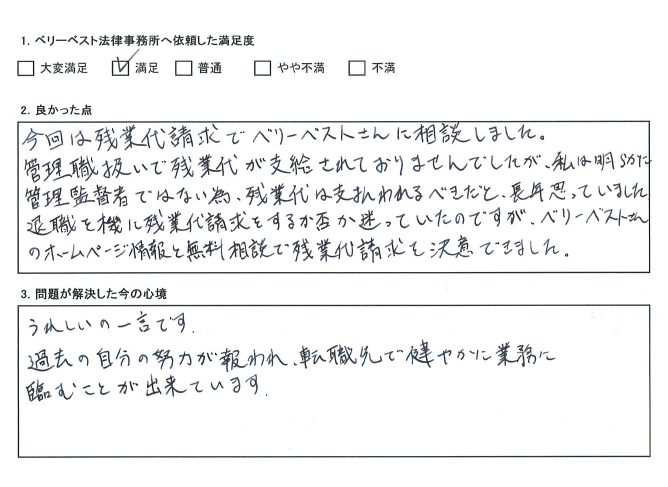 1. ベリーベスト法律事務所へ依頼した満足度
大変満足 満足 普通 やや不満 不満
2. 良かった点
今回は残業代請求でベリーベストさんに相談しました。
管理職扱いで残業代が支給されておりませんでしたが、私は明らかに
管理監督者ではない為、残業代は支払われるべきだと、長年思っていました
退職を機に残業代請求をするか否か迷っていたのですが、ベリーベストさん
のホームページ情報と無料相談で残業代請求を決意できました。
3. 問題が解決した今の心境
うれしいの一言です.
過去の自分の努力が報われ、転職先で健やかに業務に
臨むことが出来ています.